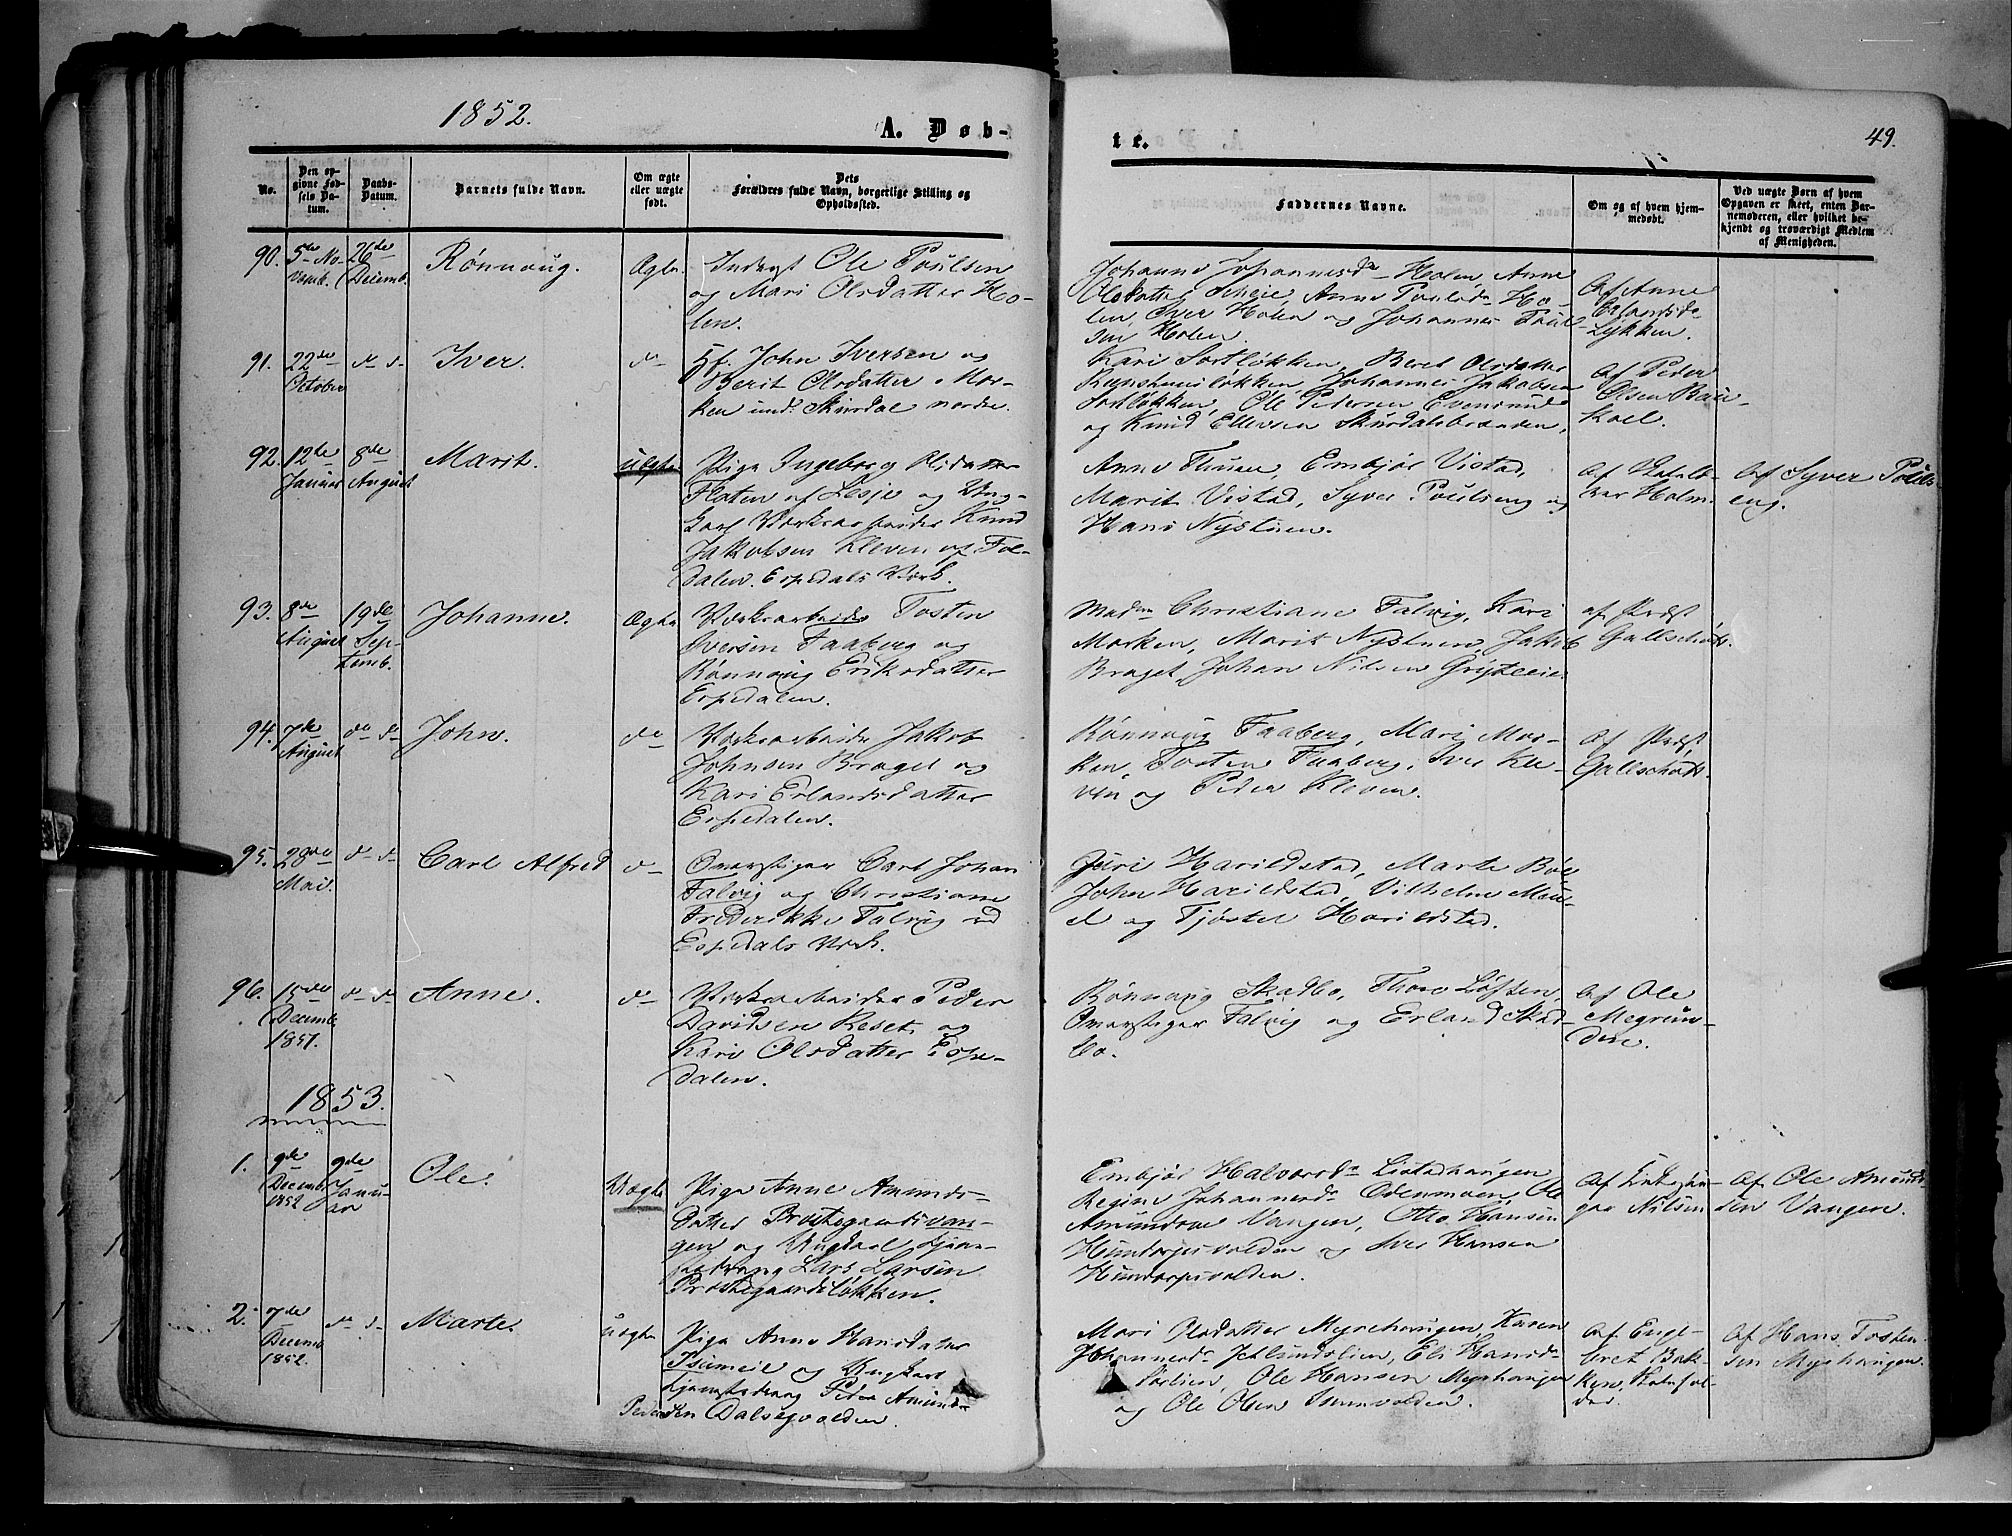 1852.
A. Døb-
te.
49.
No.
Den op-
givne Fød-
sels Da-
tum.
Daabs-
Datum.
Barnets fulde Navn.
Om ægte
eller uægte
født.
Dets
Forældres fulde Navn, borgerlige Stilling og
Opholdssted.
Faddernes Navne.
Om og af hvem hjem-
medøbt.
Ved uægte Børn af hvem
Opgaven er skeet, enten Bar-
nemoderen, eller hvilket be-
kjendt og troværdigt Medlem
af Menigheden.
90.
5te No-
vemb.
26de
Decemb.
Rønnaug.
Ægte.
Inderst Ole Poulsen
og Mari Olsdatter Ho-
len.
Johanne Johannesda Holen, Anne
Olsdatter Scheie, Anne Poulsda Ho-
len, Iver Holen og Johannes Poul-
sen Holen.
Af Anne
Erlandsda
Løkken.
91.
22de
October
do do
Iver.
do
John Iversen og
Berit Olsdatter Mor-
ken und. Skurdal nordre.
Kari Sortløkken, Beret Olsdatter
Johannes Jakobsen
Sortløkken, Ole Pedersen
og Knud Ellevsen
Af Peder
Olsen
92.
12te
Januar
8de
August
Marit.
uægte
Pige Ingeborg
Flaten af Lesje og Ung-
karl Værksarbeider Knud
Jakobsen Kleven af Fol-
dalen. Espedals Værk.
Anne Thuen, Embjør Vistad,
Marit Vistad, Syver Poulseng og
Hans Nystuen.
Af
Holm.
Af Syver Pouls-
eng.
93.
8de
August
19de
Sep-
temb.
Johanne.
Ægte
Værksarbeider Tosten
Iversen Faaberg og
Rønnaug Eriksdatter
Espedalen.
Madm Christiane Falvig, Kari
Morken, Marit Nystuen, Jakob
Braget, Johan Nilsen
af Præst
Gallschøt.
94.
7de
August
do do
John.
do
Værksarbeider Jakob
Johnsen Braget og
Kari Erlandsdatter
Espedalen.
Rønnaug Faaberg, Mari Mor-
ken, Tosten Faaberg, Iver Kle-
ven og Peder Kleven.
Af Præst
Gallschøt.
95.
28de
Mai.
do do
Carl Alfred
do
Overstiger Carl Johan
Falvig og Christiane
Frederikke Falvig ved
Espedals Værk.
Guri Harildstad, Marte Bøe
John Harildstad, Vilhelm
og Tjøstel Harildstad.
96.
15de
Decemb.
1851.
do do
Anne.
do
Værksarbeider Peder
Davidsen Reset, og
Kari Olsdatter Espe-
dalen.
Rønnaug Skadbo, Thore Løften,
Overstiger Falvig og Erland Skad-
bo.
Af Ole
Megrun-
den.
1853.
1.
9de
Decemb.
1852
9de
Janu-
ar
Ole.
Uægte
Pige Anne Amunds-
datter Præstegaardsvan-
gen og Ungkarl Tjene-
stedreng Lars Larsen
Præstegaardsløkken.
Embjør Halvorsda Listadhaugen
Regine Johannesda Odenmoen, Ole
Amundsen Vangen, Otto Hansen
Hundorpsvolden og Iver Hansen
Hundorpsvolden.
Af
Nilsen
Af Ole Amund-
sen Vangen.
2.
7de
Decemb.
1852.
do do
Marte.
uægte
Pige Anne Hansdatter
og Ungkarl
Tjenestedreng Peder Amund-
sen Dalsegvolden.
Mari Olsdatter Myrehaugen, Karen
Johannesda Jetlundslien, Eli Hansda
Ole Hansen Myrehaugen
og Ole Olsen
Af Enge-
bret Bak-
ken,
Af Hans Tosten-
sen Myrhaugen.